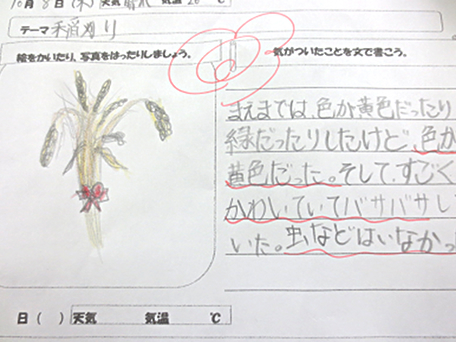 10月8日(木) 天気 晴れ 気温 20℃
テーマ 稲刈り
絵をかいたり、写真をはったりしましょう。
気がついたことを文で書こう。
まえまでは、色が黄色だったり
緑だったりしたけど、色が
黄色だった。そして、すごく
かわいていてバサバサし
いた。虫などはいなかっ
日( ) 天気 気温 ℃